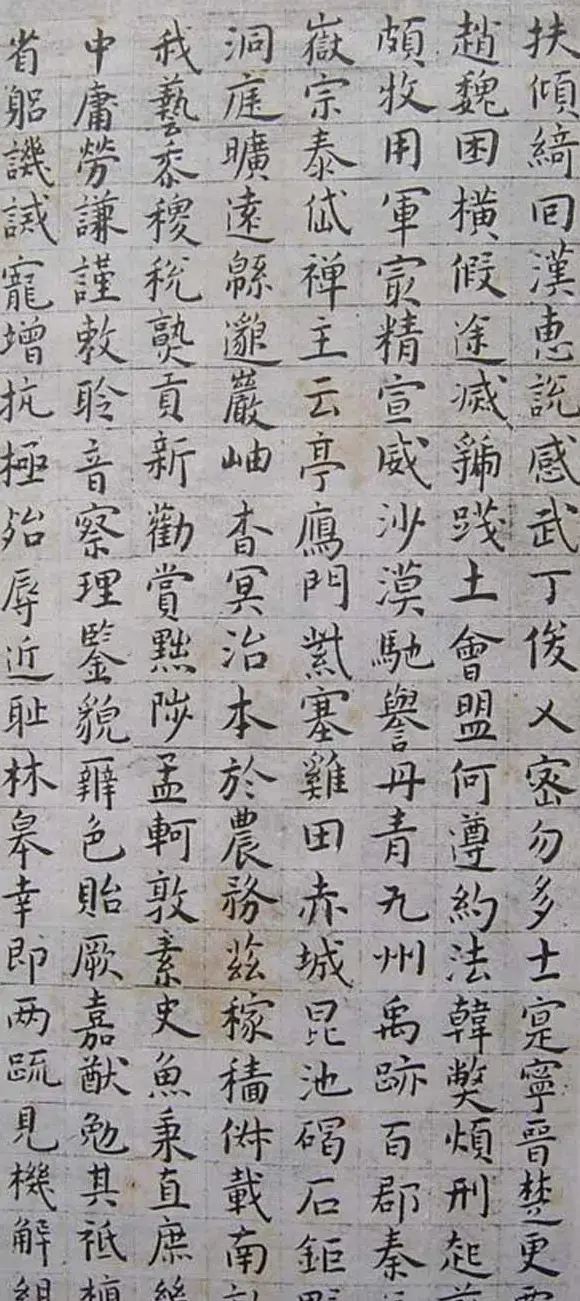 扶傾綺回漢恵說感武丁俊乂密勿多士寔寧晉楚更
趙魏困橫假途滅虢踐土會盟何遵約法韓弊煩刑起
頗牧用軍冣精宣威沙漠馳譽丹青九州禹跡百郡秦
嶽宗泰岱禪主云亭鴈門紫塞雞田赤城昆池碣石鉅
洞庭曠遠緜邈巖岫杳冥治本於農務茲稼穡俶載南
我藝黍稷稅熟貢新勸賞黜陟孟軻敦素史魚秉直庶
中庸勞謙謹敕聆音察理鑒貌辨色貽厥嘉猷勉其祗
省躬譏誡寵增抗極殆辱近耻林皋幸即两疏見機解